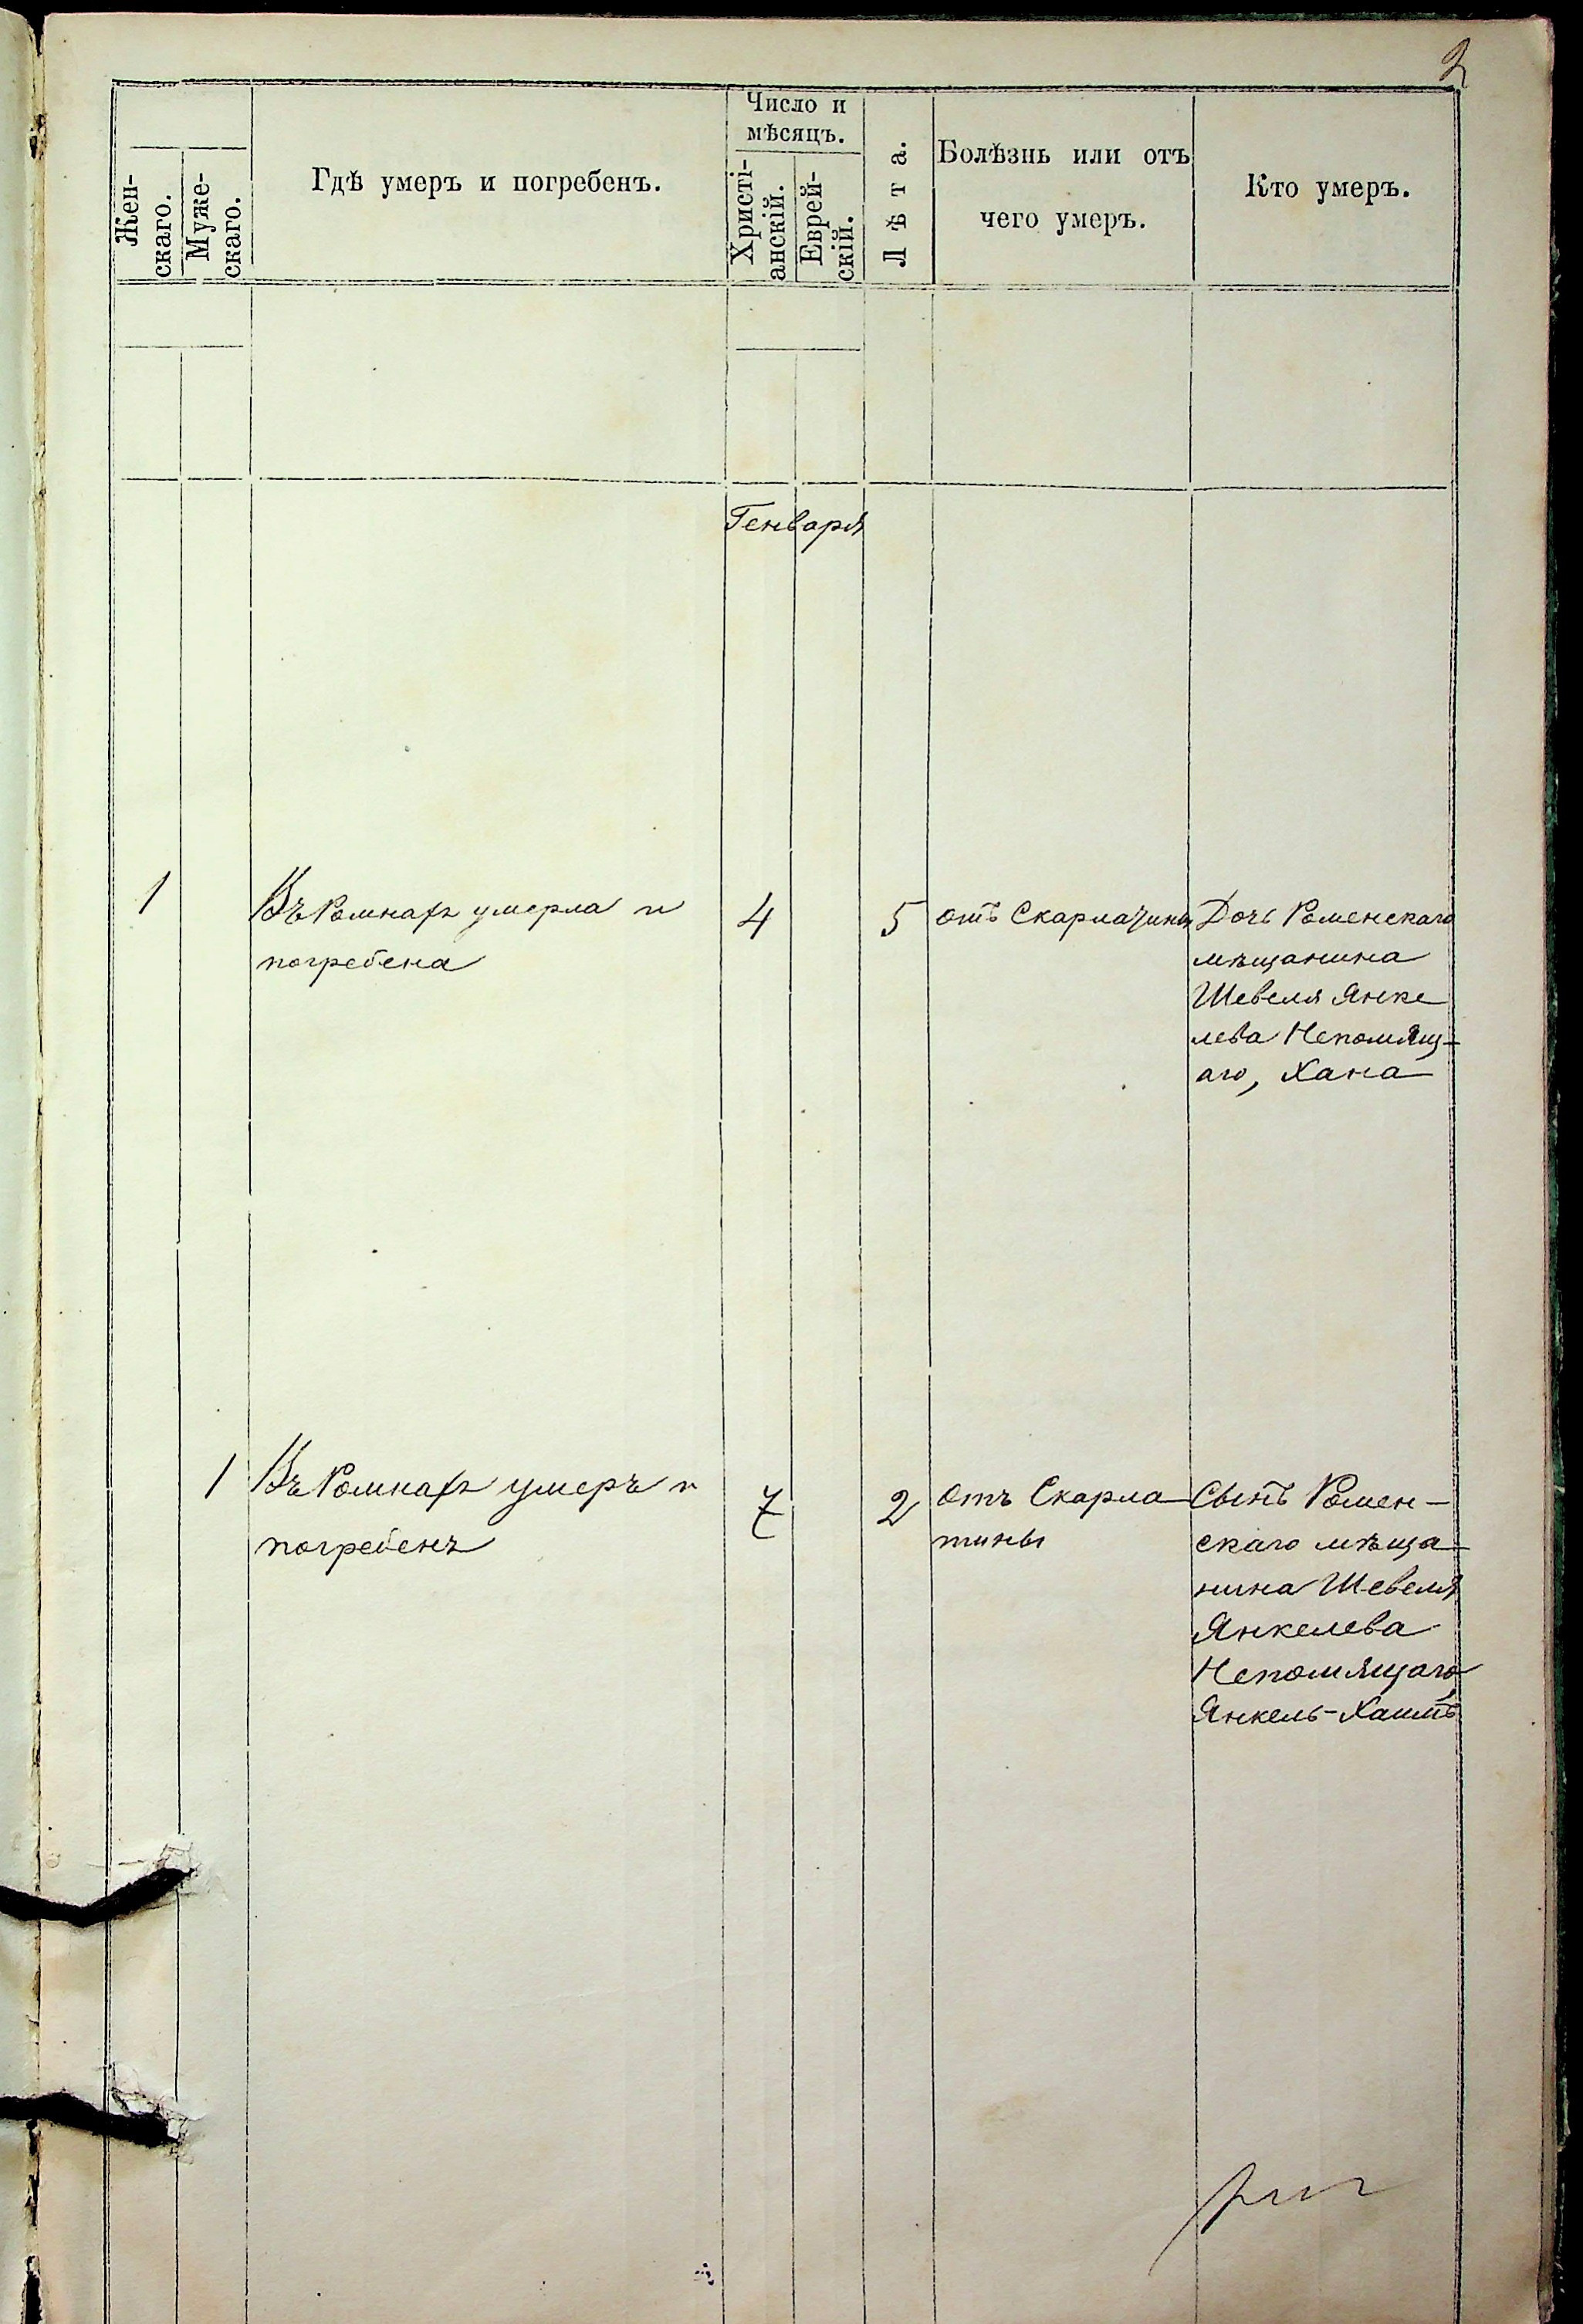 2
Жен-
скаго.
Муже-
скаго.
Гдѣ умеръ и погребенъ.
Число и
мѣсяцъ.
Христі-
анскій.
Еврей-
скій.
Лѣта.
Болѣзнь или отъ
чего умеръ.
Кто умеръ.
Генваря
1
Въ Ромнахъ умерла и
погребена
4
5
отъ Скарлатины
Дочь Роменскаго
мѣщанина
Шевеля Янке
лева Непомящ-
аго, Хана
1
Въ Ромнахъ умеръ и
погребенъ
7
2
отъ Скарла
тины
Сынъ Ромен-
скаго мѣща-
нина Шевеля
Янкелева
Непомящаго,
Янкель-Хаимъ